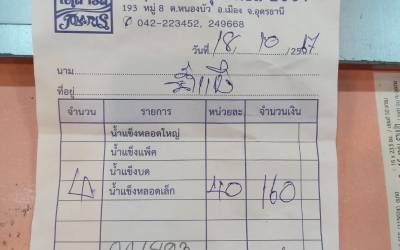 193 หมู่ 8 ต.หนองบัว อ.เมือง จ.อุดรธานี
✆ 042-223452, 249668
วันที่ 18 / 10 / 2567
นาม
ที่อยู่
จำนวน รายการ หน่วยละ จำนวนเงิน
น้ำแข็งหลอดใหญ่
น้ำแข็งแพ็ค
น้ำแข็งบด
4 น้ำแข็งหลอดเล็ก 40 160